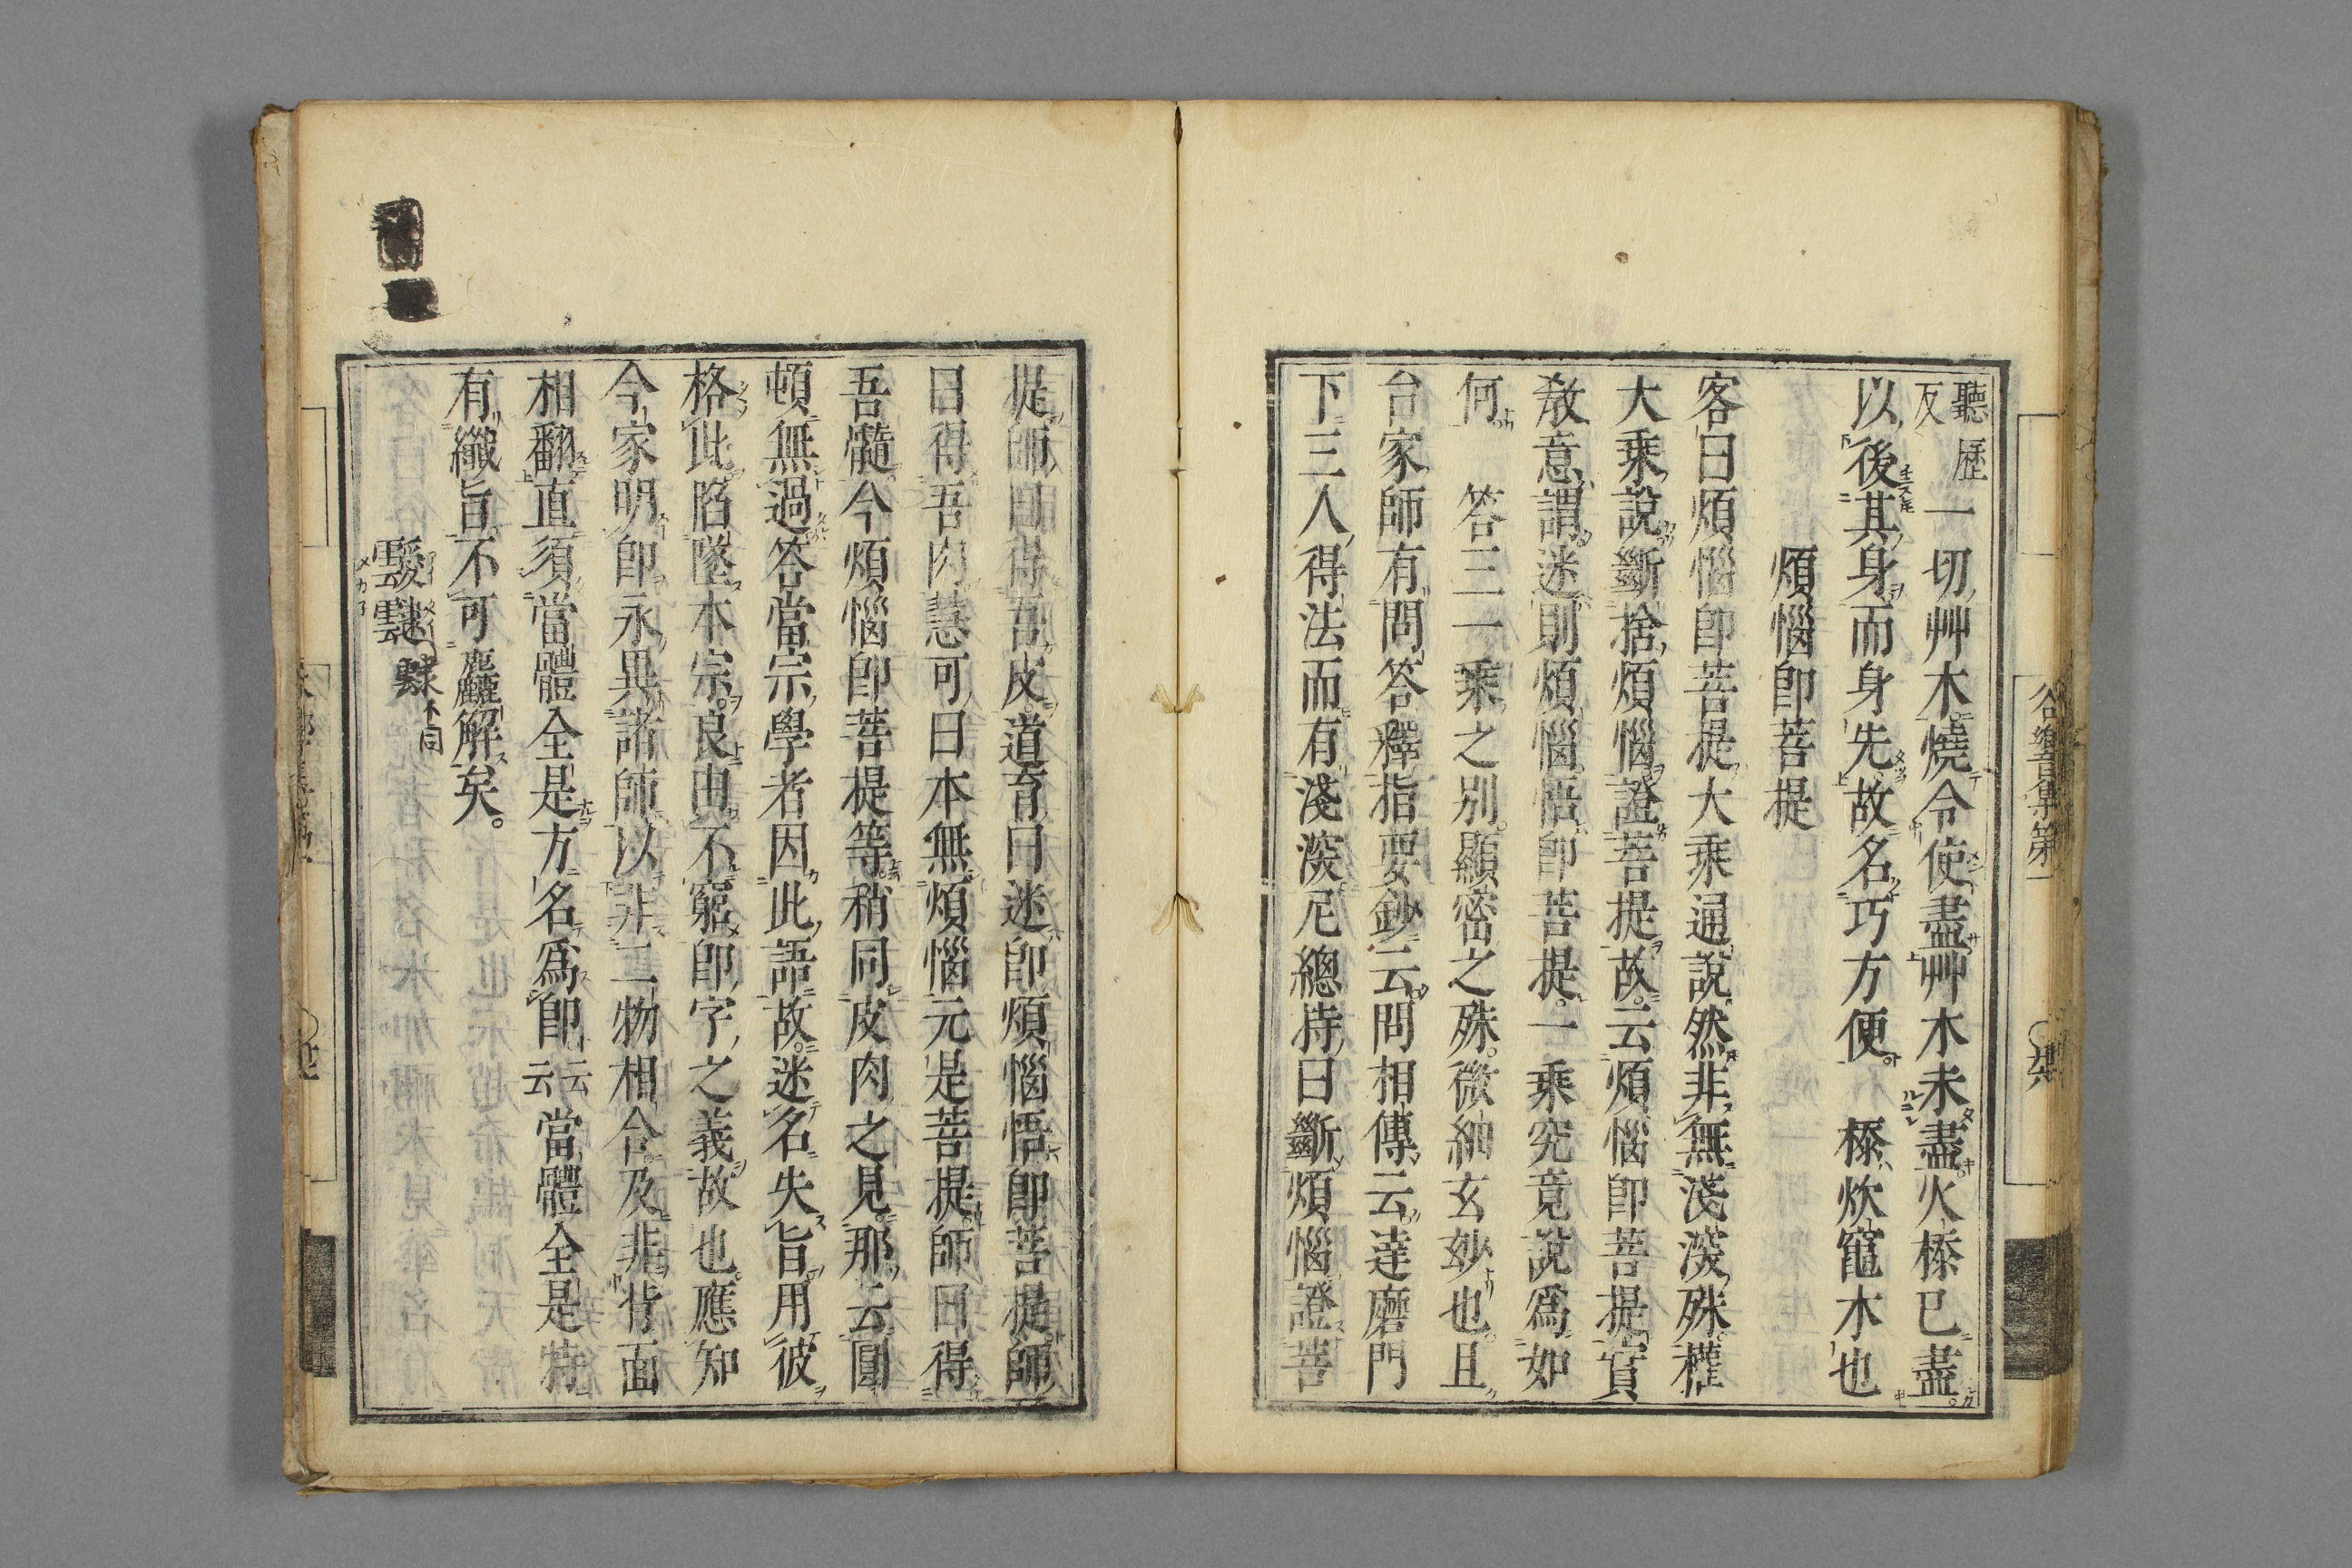 聽歷
反
一切艸木燒令使盡艸木未盡火㮇已盡
以後其身而身先故名巧方便　㮇炊竈木也
煩惱卽菩提
客曰煩惱卽菩提大乘通說然非無淺深殊權
大乘說斷捨煩惱證菩提故云煩惱卽菩提實
敎意謂迷則煩惱悟卽菩提一乘究竟說爲如
何　答三一乘之別顯密之殊微細玄妙也且
台家師有問答釋指要鈔云問相傳云達磨門
下三人得法而有淺深尼總持曰斷煩惱證菩
提師曰得吾皮道育曰迷卽煩惱悟卽菩提師
曰得吾肉慧可曰本無煩惱元是菩提師曰得
吾髓今煩惱卽菩提等稍同皮肉之見那云圓
頓無過答當宗學者因此語故迷名失旨用彼
格此陷墜本宗良由不窮卽字之義故也應知
今家明卽永異諸師以非二物相合及非背面
相翻直須當體全是方名爲卽云云當體全是特
有纖旨不可麤解矣。
靉靆
不同
谷響集第一